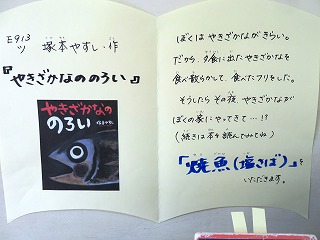 E913
ツ
塚本やすし・作
『やきざかなののろい』
やきざかなの
のろい
塚本やすし
ぼくは やきざかながきらい。
だから、夕食に出たやきざかなを
食べ散らかして、食べたフリをした。
そうしたら その夜、やきざかなが
ぼくの家にやってきて…!?
(続きは本を読んでみてね)
「焼魚(塩さば)」を
いただきます。